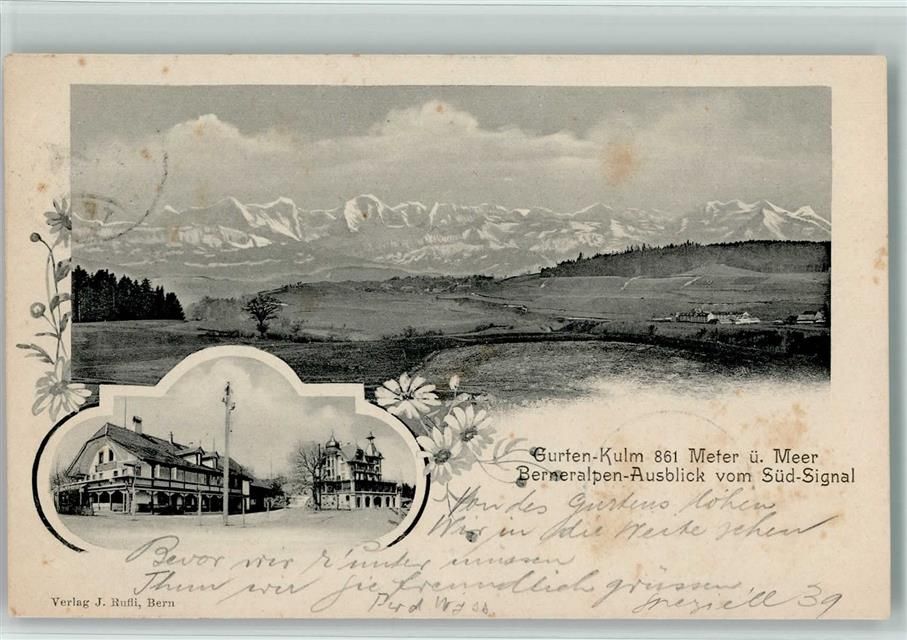 Gurten-Kulm 861 Meter ü. Meer
Berneralpen-Ausblick vom Süd-Signal
Von des Gurtens Höhen
Wir in die Weite sehen
Bevor wir r'unter müssen
Thun wir Sie freundlich grüssen
speziell 39
Verlag J. Rufli, Bern